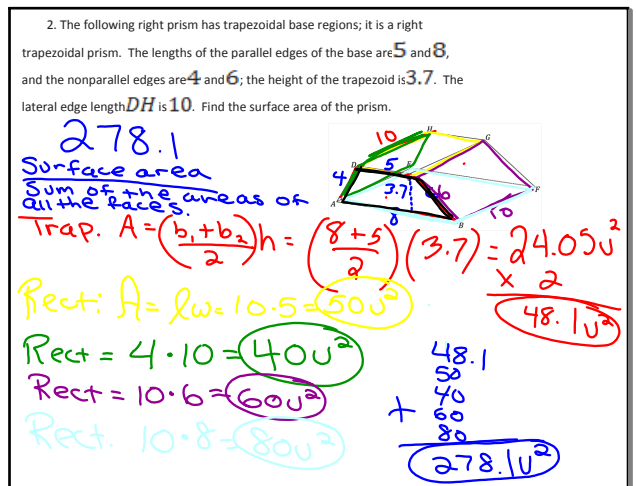 2. The following right prism has trapezoidal base regions; it is a right
trapezoidal prism. The lengths of the parallel edges of the base are 5 and 8,
and the nonparallel edges are 4 and 6; the height of the trapezoid is 3.7. The
lateral edge length DH is 10. Find the surface area of the prism.
278.1
Surface area
Sum of the areas of
all the faces.
10
H
G
D
5
4
3.7
6
F
A
8
B
10
Trap. A = (b₁+b₂ / 2)h = (8+5 / 2)(3.7) = 24.05u²
x 2
48.1u²
Rect: A = lw = 10·5 = 50u²
Rect = 4·10 = 40u²
Rect = 10·6 = 60u²
Rect. 10·8 = 80u²
48.1
50
40
+ 60
80
278.1u²